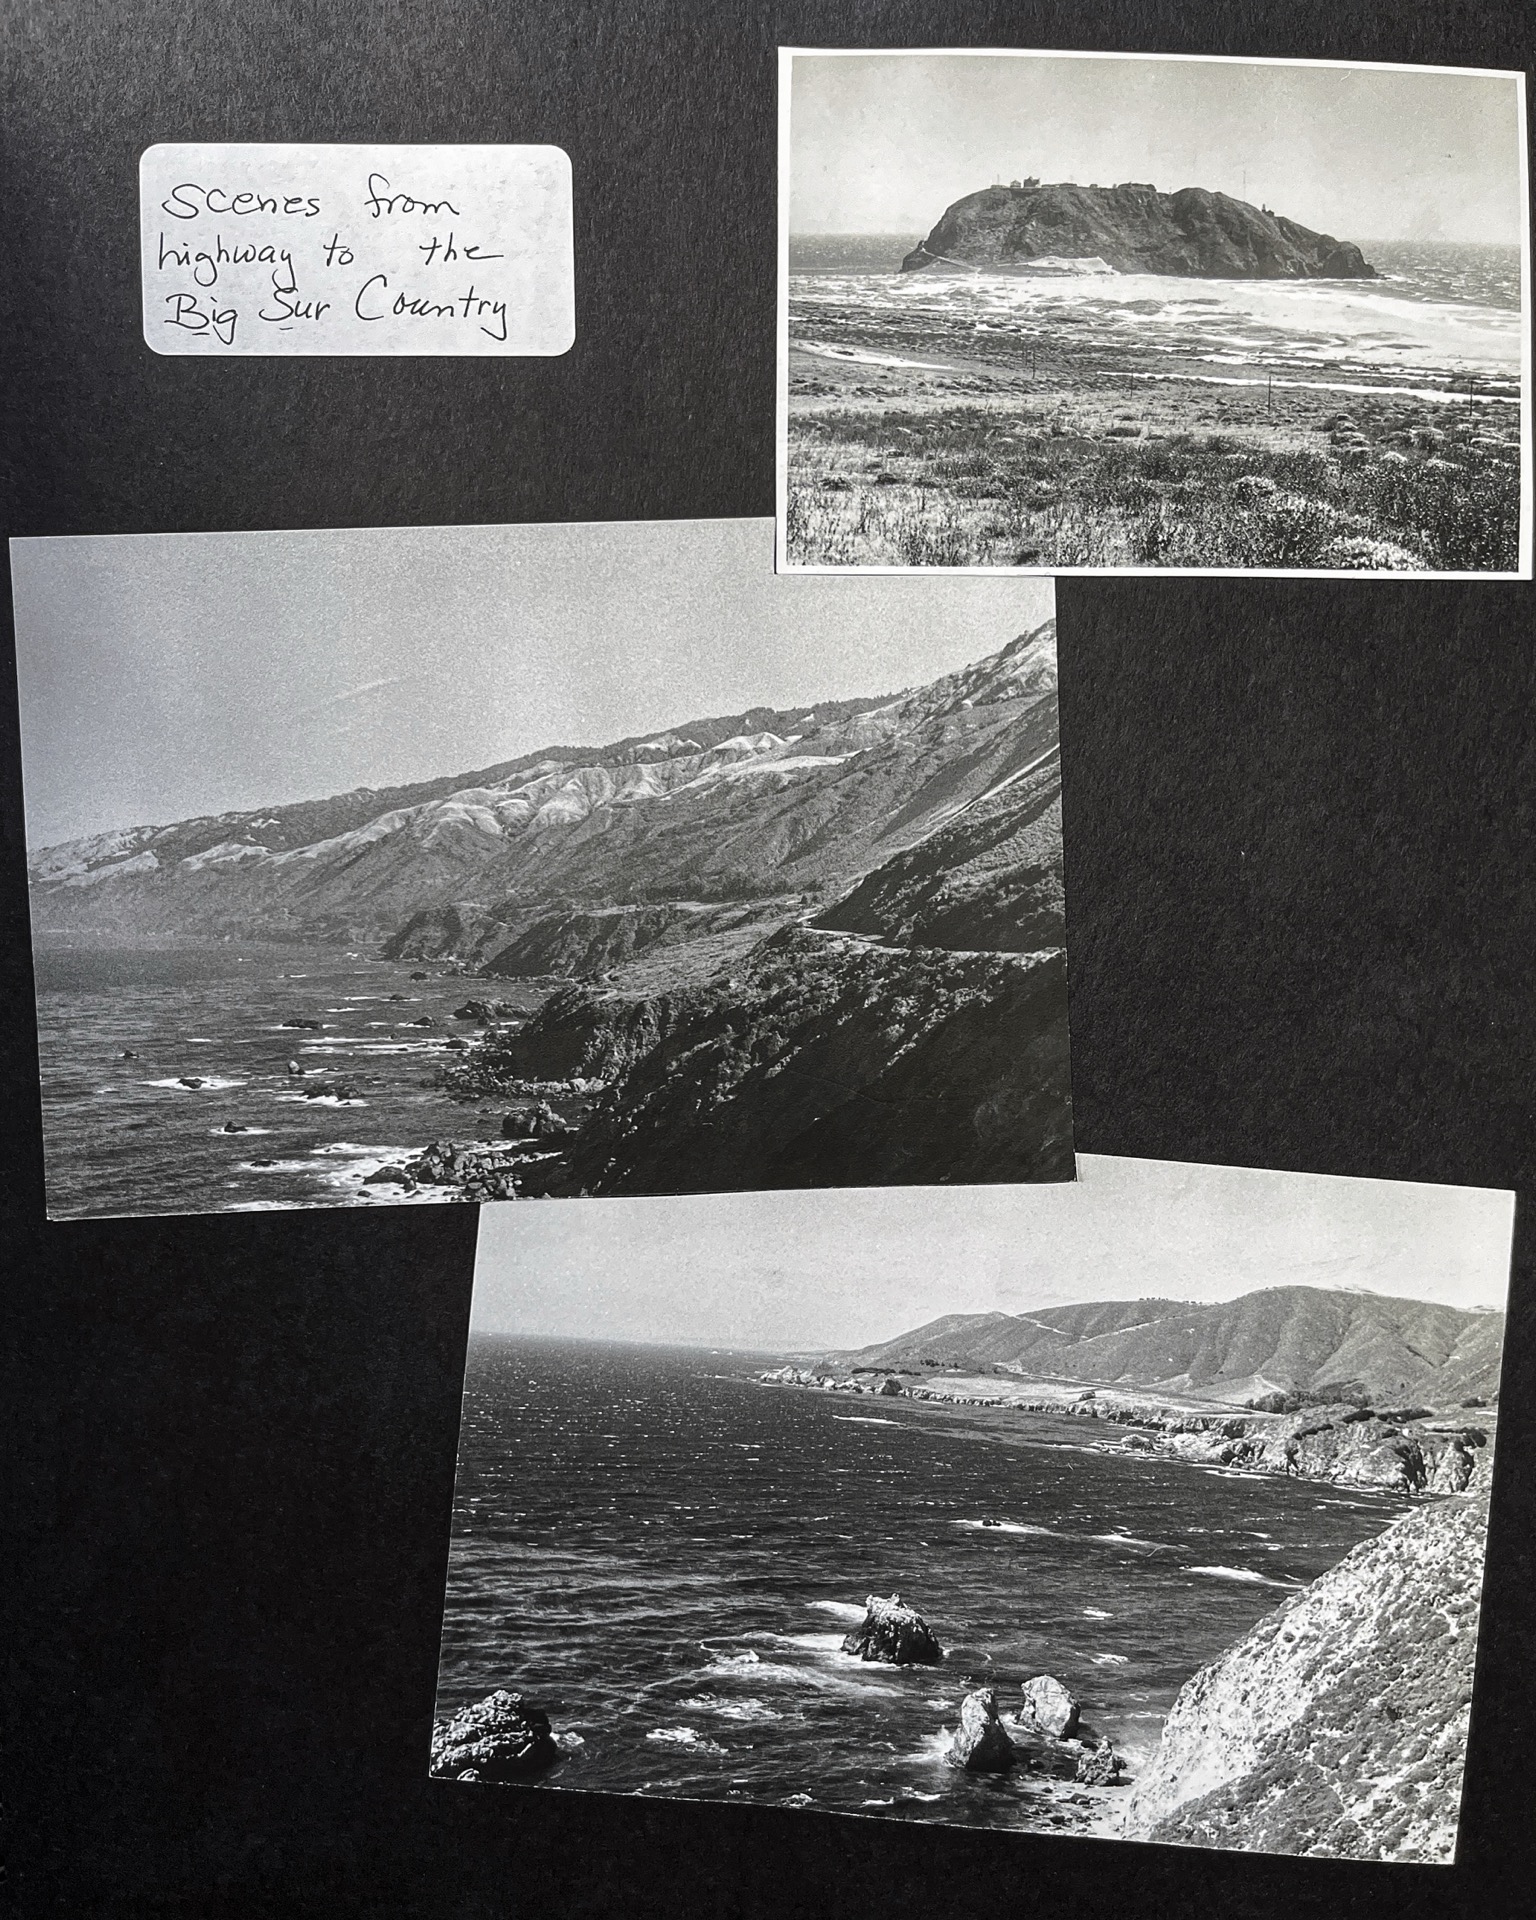 Scenes from
highway to the
Big Sur Country